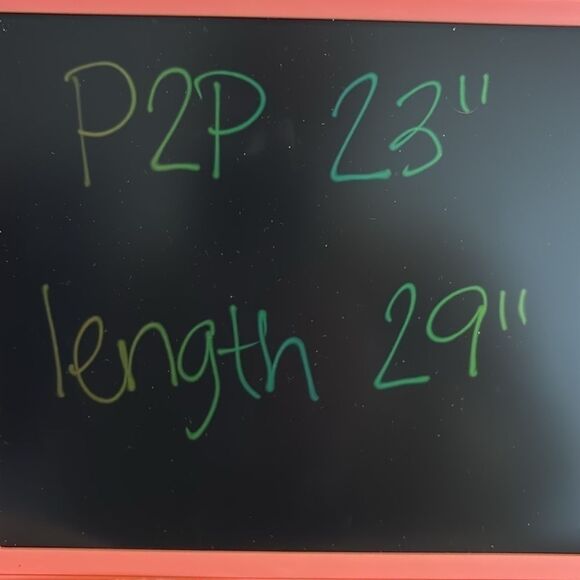 P2P 23"
length 29"